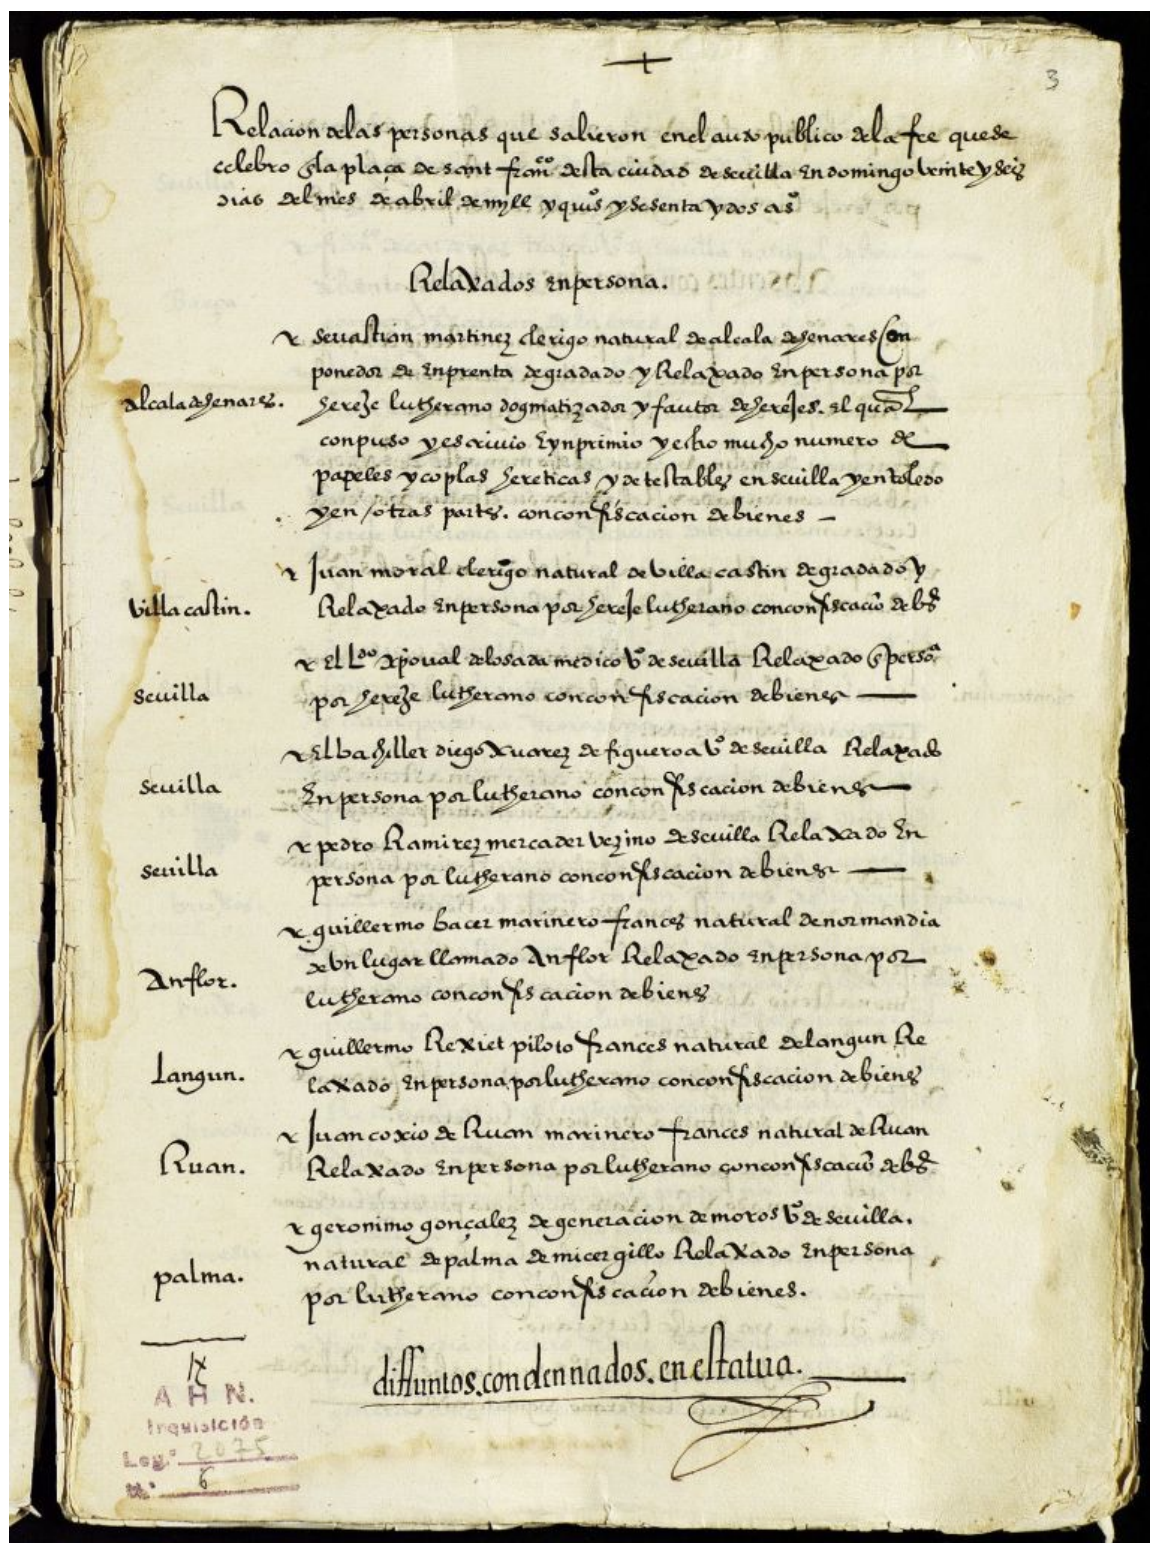 3
Relacion delas personas que salieron enel auto publico dela fee quese
celebro enla plaça de sant franco desta ciudad de sevilla En domingo veinte y seis
dias del mes de abril de myll y quios y sesenta y dos aos
Relaxados Enpersona.
Sevastian martinez clerigo natural de alcala dehenares Con
ponedor de Enprenta degradado y Relaxado Enpersona por
alcala dehenares.
hereje lutherano dogmatizador y fautor de herejes. El qual
conpuso y escrivio E ynprimio y echo mucho numero de
papeles y coplas hereticas y detestables en sevilla y en toledo
y en otras partes. con confiscacion de bienes
Juan moral clerigo natural de villa castin degradado y
villa castin.
Relaxado Enpersona por hereje lutherano con confiscacio de bs
El Ldo xpoval de losada medico vo de sevilla Relaxado En persoa
sevilla
por hereje lutherano con confiscacion de bienes
El bachiller diego xuarez de figueroa vo de sevilla Relaxado
sevilla
Enpersona por lutherano con confiscacion de bienes
pedro Ramirez mercader vezino de sevilla Relaxado En
sevilla
persona por lutherano con confiscacion de bienes
guillermo bacer marinero frances natural de normandia
de un lugar llamado Anflor Relaxado Enpersona por
Anflor.
lutherano con confiscacion de bienes
guillermo Rexiet piloto frances natural de langun Re
Langun.
laxado Enpersona por lutherano con confiscacion de bienes
Juan coxio de Ruan marinero frances natural de Ruan
Ruan.
Relaxado Enpersona por lutherano con confiscacio de bs
geronimo gonçalez de generacion de moros vo de sevilla.
natural de palma de micer gillo Relaxado Enpersona
palma.
por lutherano con confiscacion de bienes.
IX
diffuntos. condennados. en estatua.
A H N.
Inquisición
Leg.º 2075
N.º 6